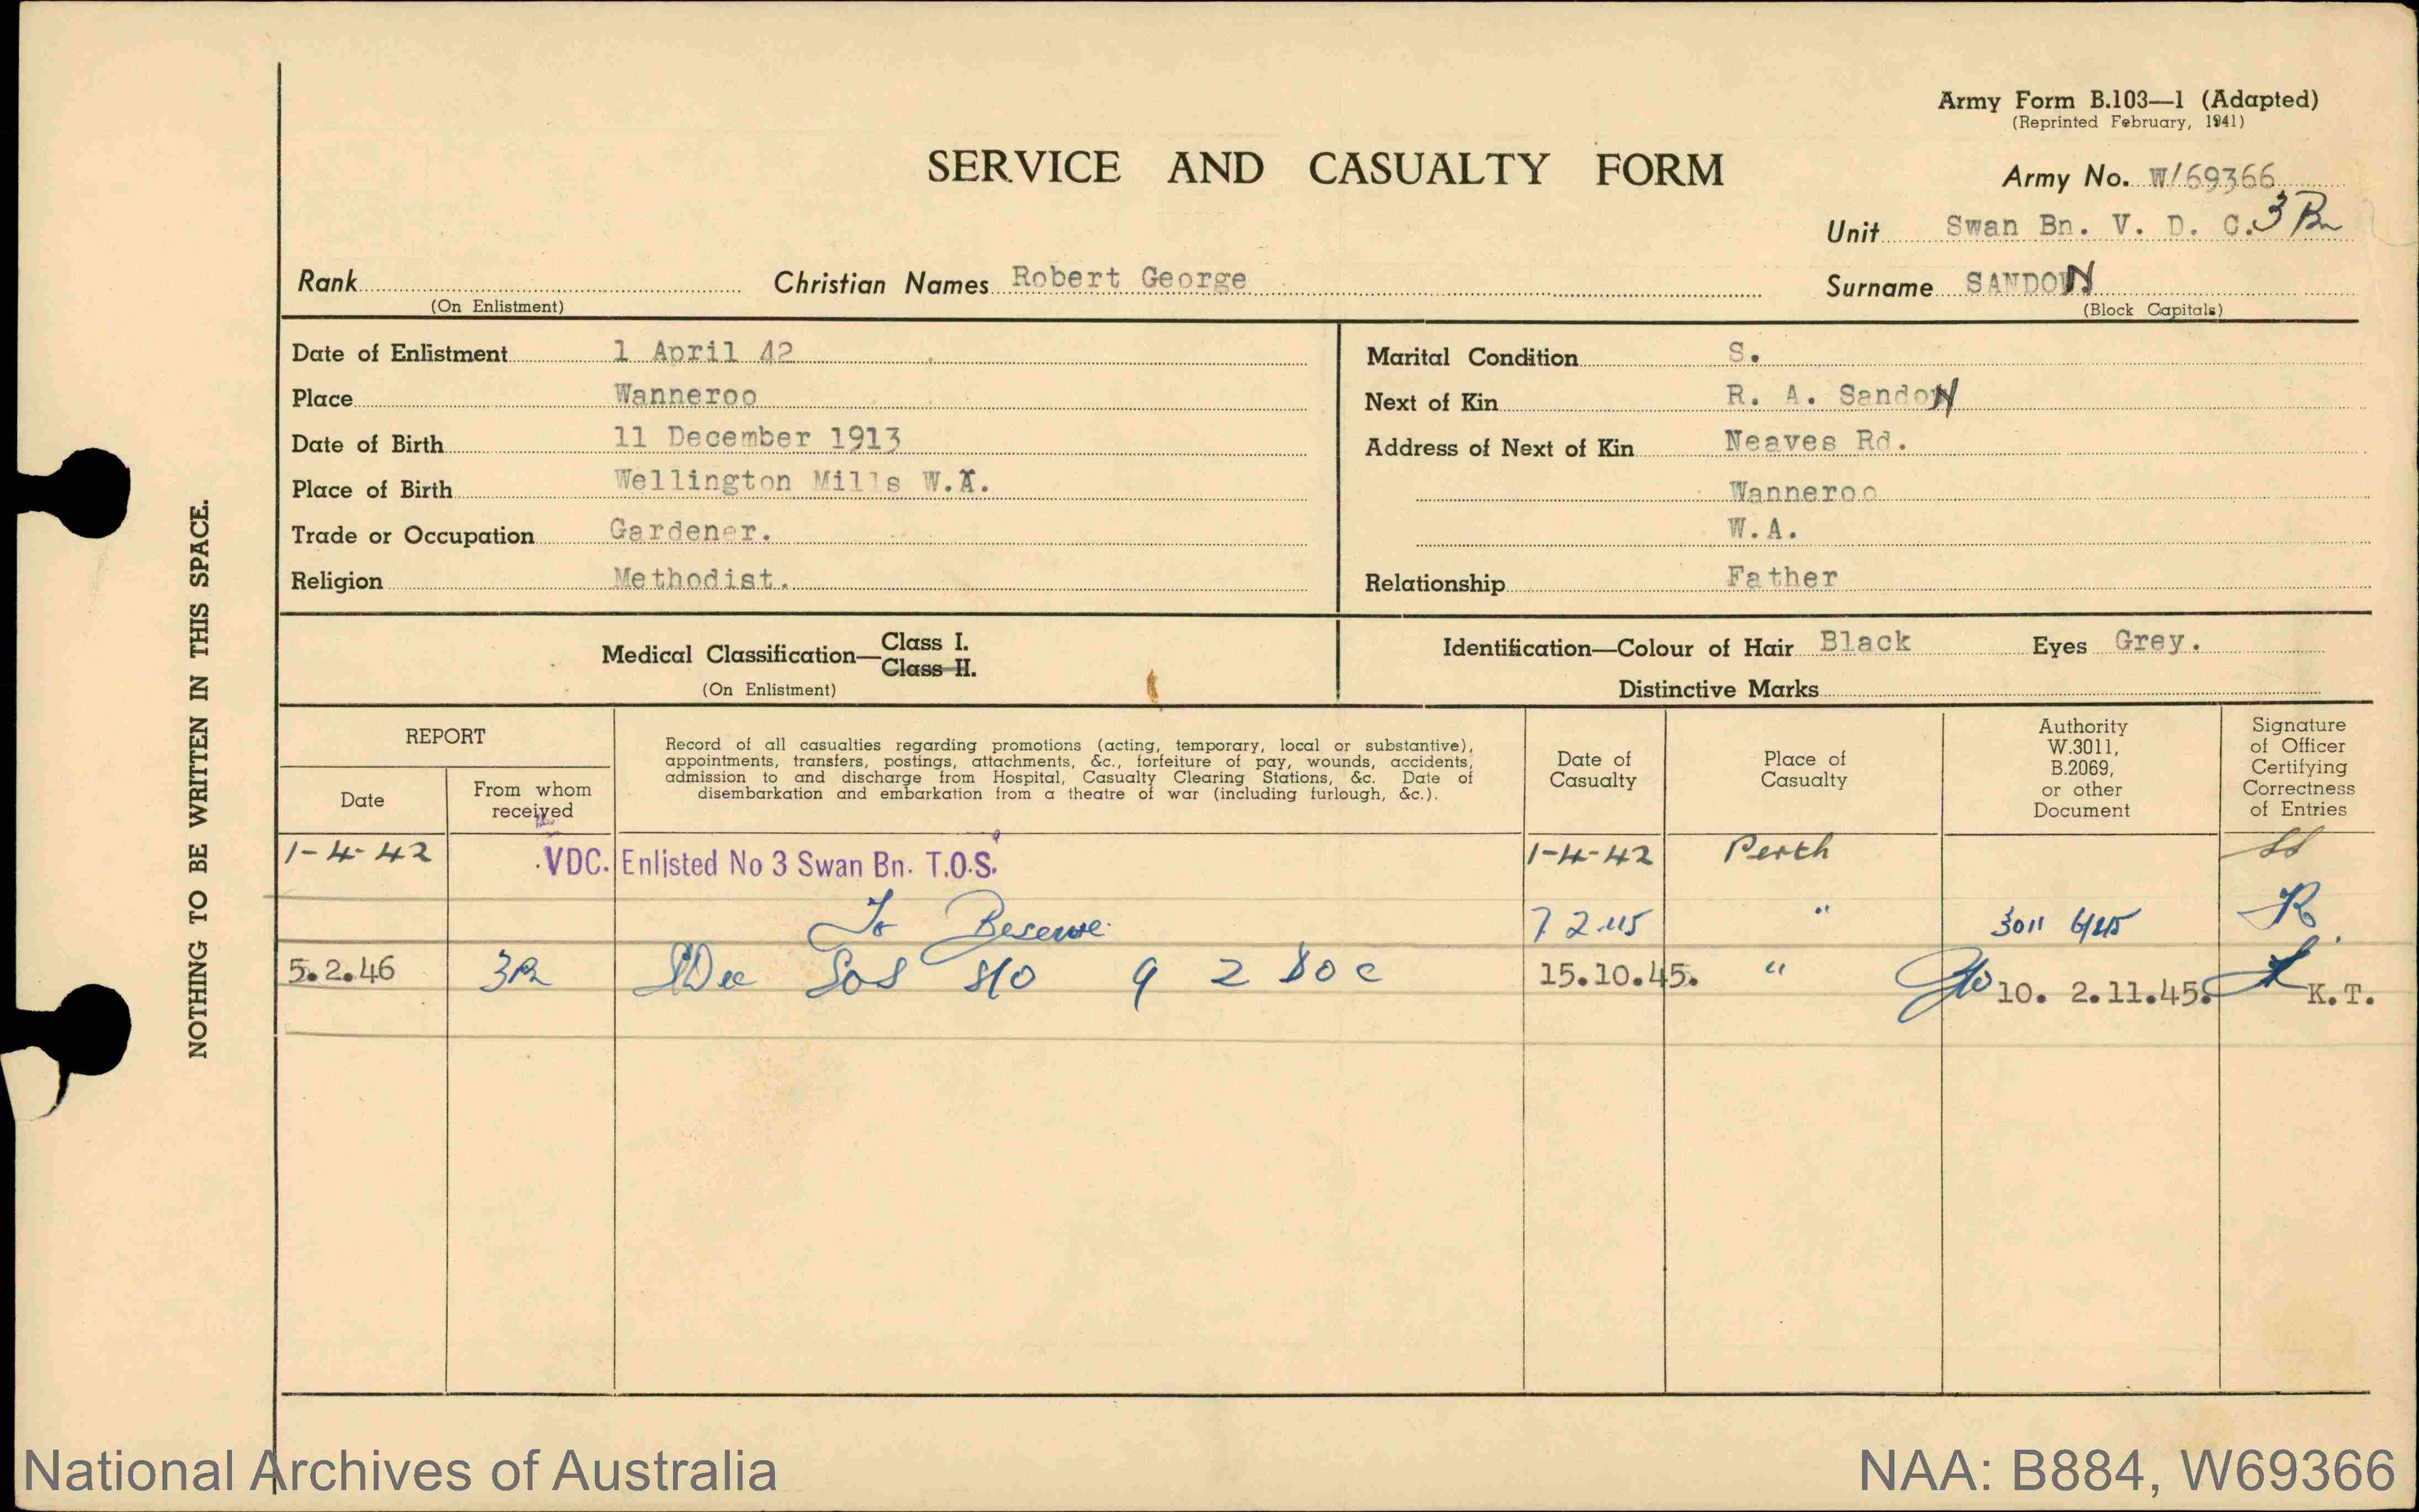 Army Form B.103—1 (Adapted)
(Reprinted February, 1941)
SERVICE AND CASUALTY FORM
Army No. W/69366
Unit Swan Bn. V. D. C. 3 Bn
Rank
(On Enlistment)
Christian Names Robert George
Surname SANDON
(Block Capitals)
Date of Enlistment 1 April 42
Place Wanneroo
Date of Birth 11 December 1913
Place of Birth Wellington Mills W.A.
Trade or Occupation Gardener.
Religion Methodist.
Marital Condition S.
Next of Kin R. A. Sandon
Address of Next of Kin Neaves Rd.
Wanneroo
W.A.
Relationship Father
Medical Classification— Class I.
Class II.
(On Enlistment)
Identification—Colour of Hair Black Eyes Grey.
Distinctive Marks
REPORT
Date
From whom received
Record of all casualties regarding promotions (acting, temporary, local or substantive),
appointments, transfers, postings, attachments, &c., forfeiture of pay, wounds, accidents,
admission to and discharge from Hospital, Casualty Clearing Stations, &c. Date of
disembarkation and embarkation from a theatre of war (including furlough, &c.).
Date of Casualty
Place of Casualty
Authority W.3011, B.2069, or other Document
Signature of Officer Certifying Correctness of Entries
1-4-42 VDC. Enlisted No 3 Swan Bn. T.O.S. 1-4-42 Perth
To Reserve. 7 2 45 " 3011 6/45
5.2.46 SOS 15.10.45. " 10. 2.11.45. K.T.
NOTHING TO BE WRITTEN IN THIS SPACE.
National Archives of Australia
NAA: B884, W69366